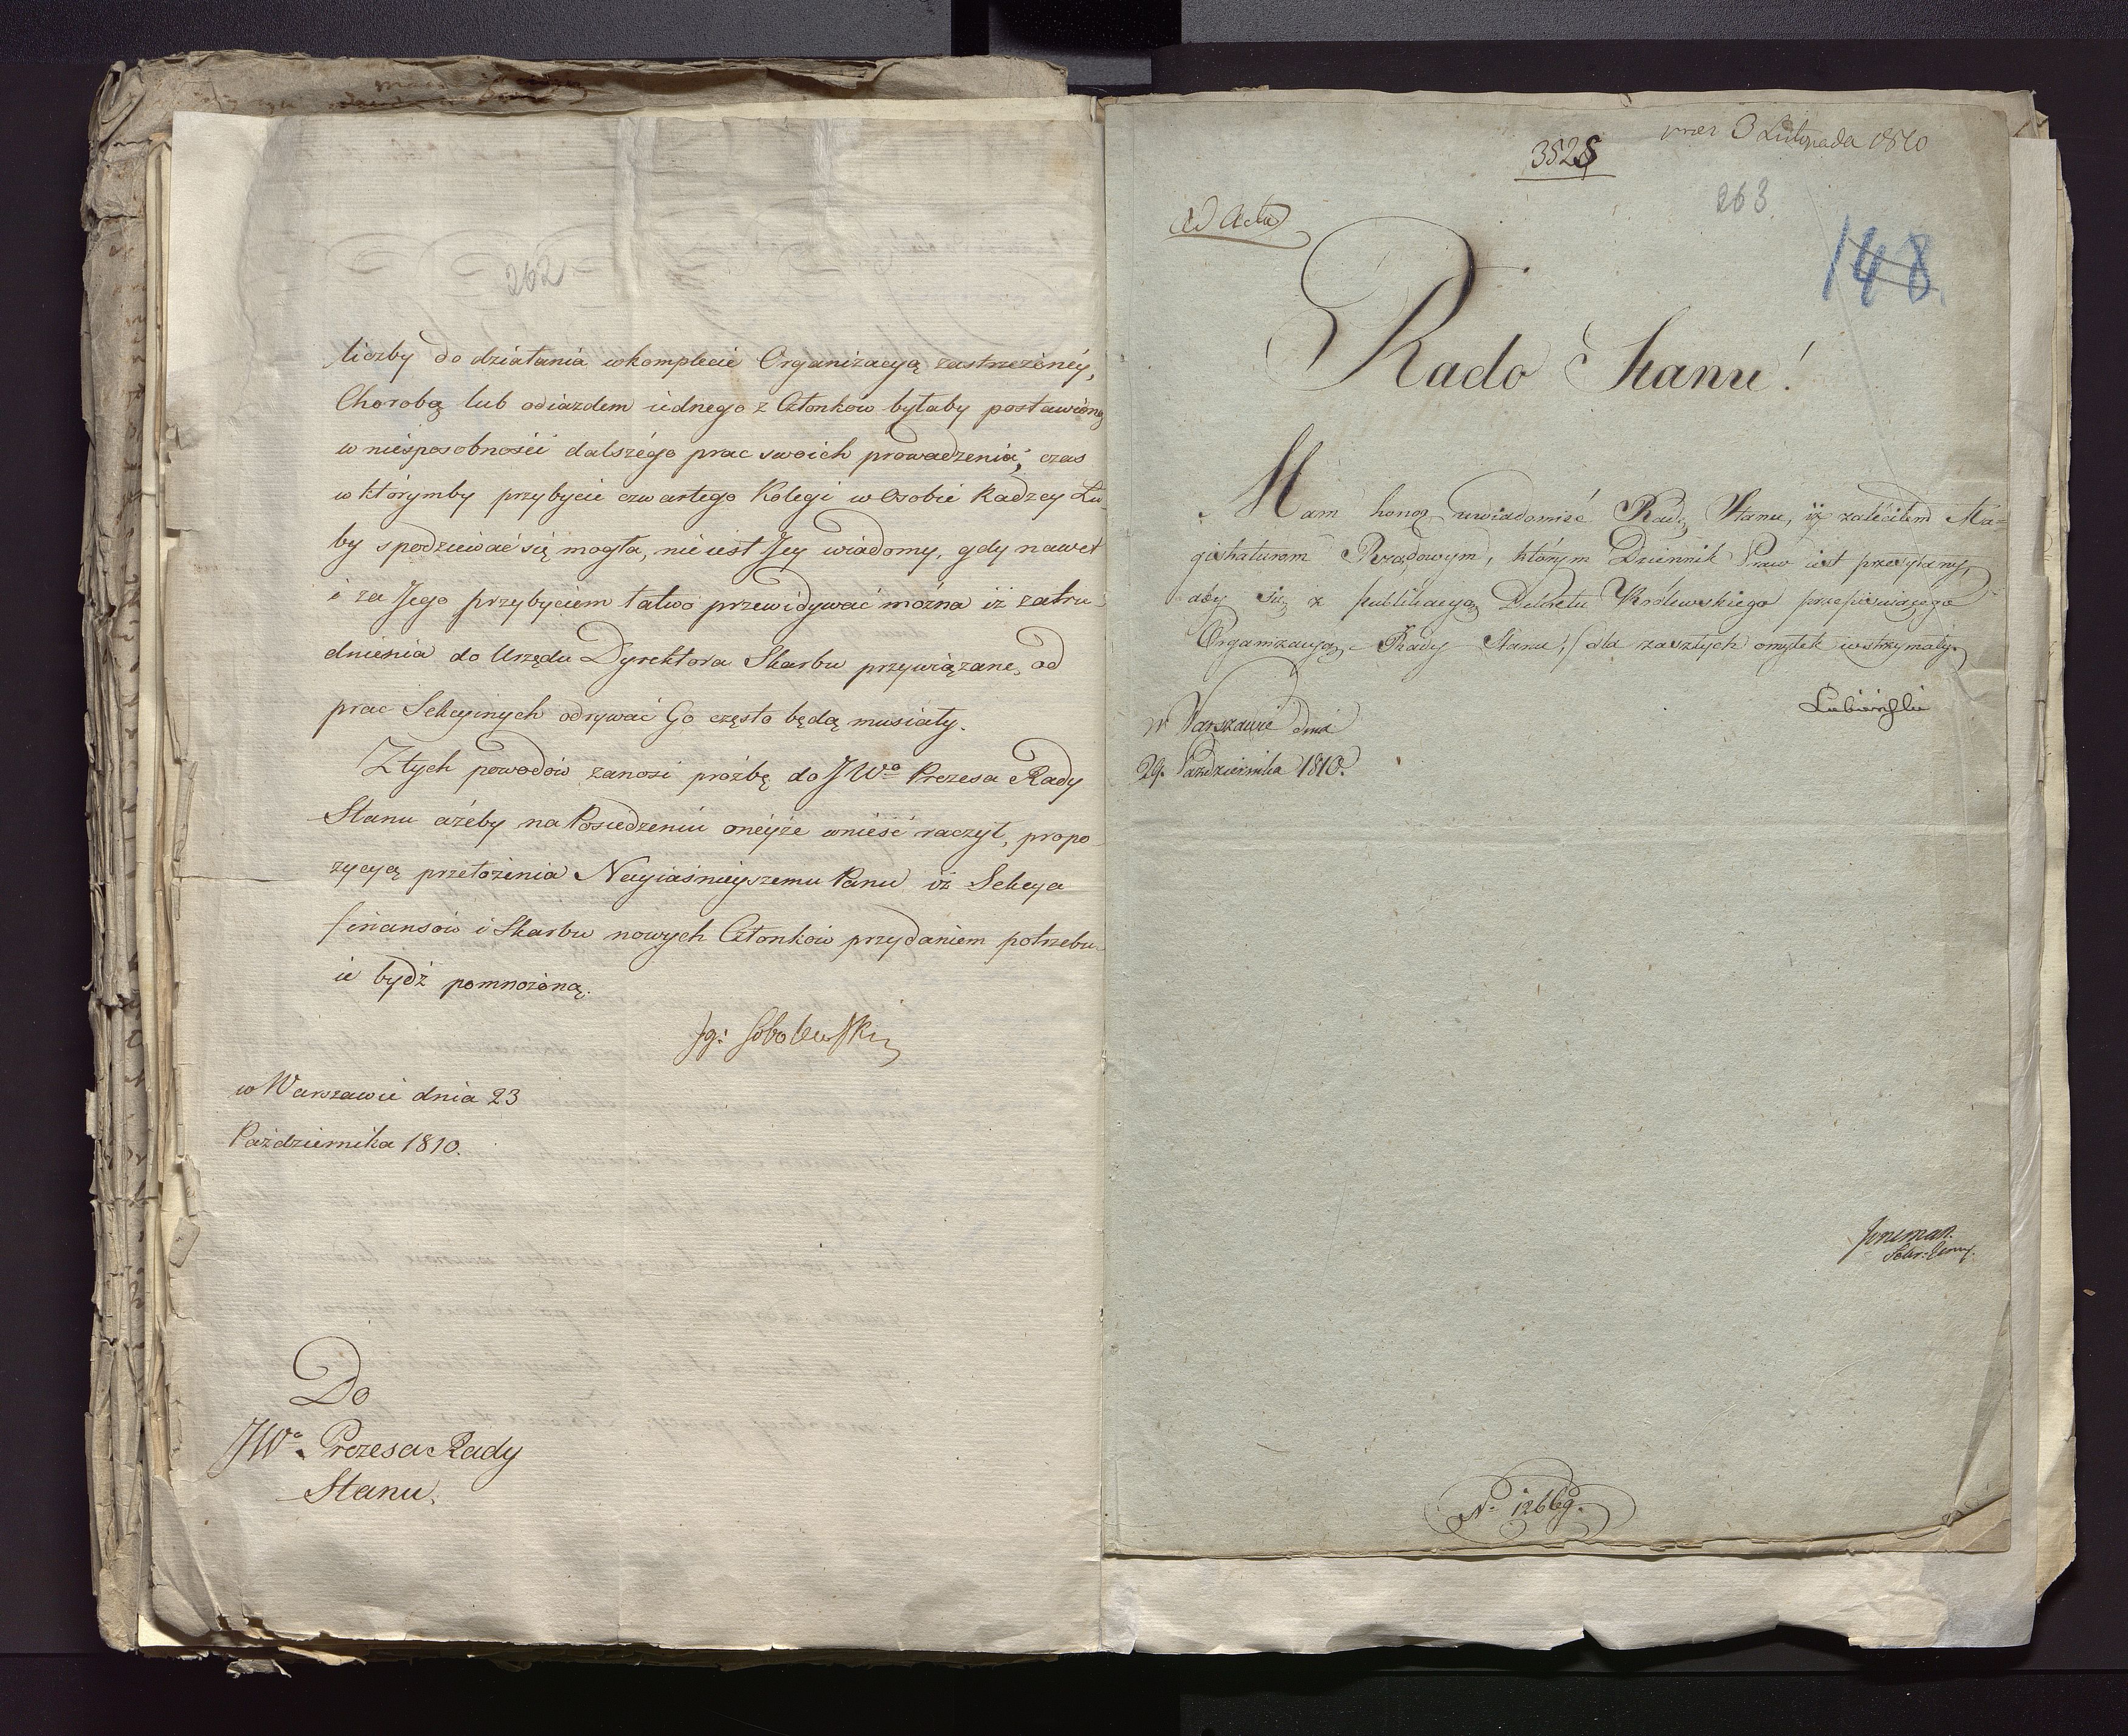 262
liczby do działania w komplecie Organizacyą zastrzeżonéy,
Chorobą lub odiazdem iednego z Członków byłaby postawioną
w niesposobności dalszégo prac swoich prowadzenia; czas
w którymby przybycie czwartego Kolegi w Osobie Radzcy Łu-
by spodziewać się mogła, nie iest Jey wiadomy, gdy nawet
i za Jego przybyciem łatwo przewidywać można iż zatru-
dnienia do Urzędu Dyrektora Skarbu przywiązane, od
prac Sekcyinych odrywać Go często będą musiały.
Z tych powodów zanosi proźbę do JWo Prezesa Rady
Stanu ażeby na Posiedzeniu oneyże wnieść raczył, propo-
zycyą przełożenia Nayiaśnieyszemu Panu iż Sekcya
finansów i Skarbu nowych Członków przydaniem potrzebu-
ie bydź pomnożoną.
Jg: Sobolewski
w Warszawie dnia 23
Października 1810.
Do
JWo Prezesa Rady
Stanu.
3528
3 Listopada 1810
263
Ad Acta
148
Rado Stanu!
Mam honor uwiadomić Radę Stanu, iż zaleciłem Ma-
gistraturom Rządowym, którym Dziennik Praw iest przesyłany,
aby się z publikacyą Dekretu Królewskiego przepisuiącego
Organizacyą Rady Stanu, dla zaszłych omyłek wstrzymały.
Łubieński
w Warszawie dnia
29. Października 1810.
Sekr: Gen:
No 12669.